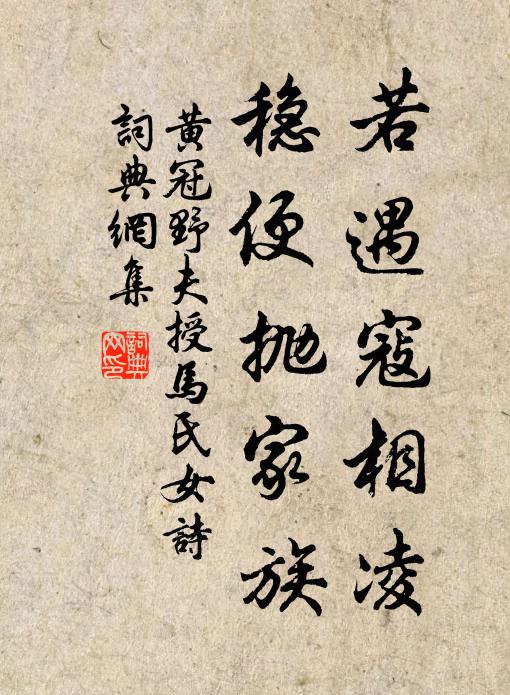 若遇寇相凌
穩便拋家族
黃冠野夫授馬氏女詩
詞典網集
詞典
网印